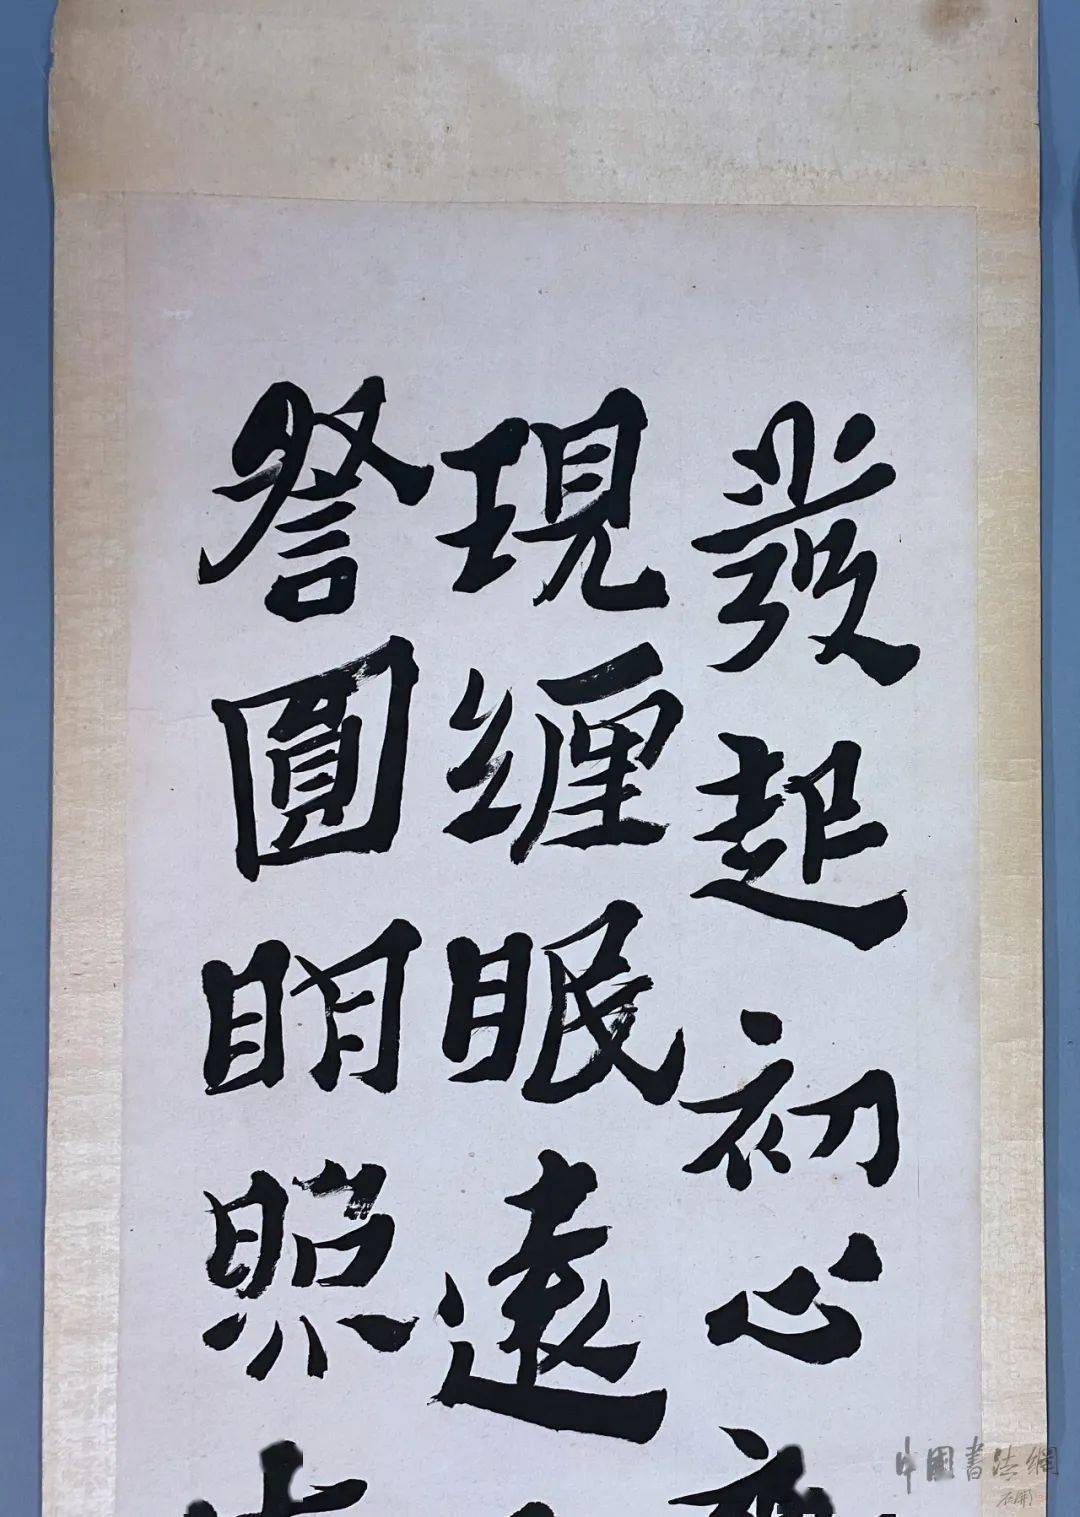 發起初心
現緾眠遠
詧圓眀照
中國書法網